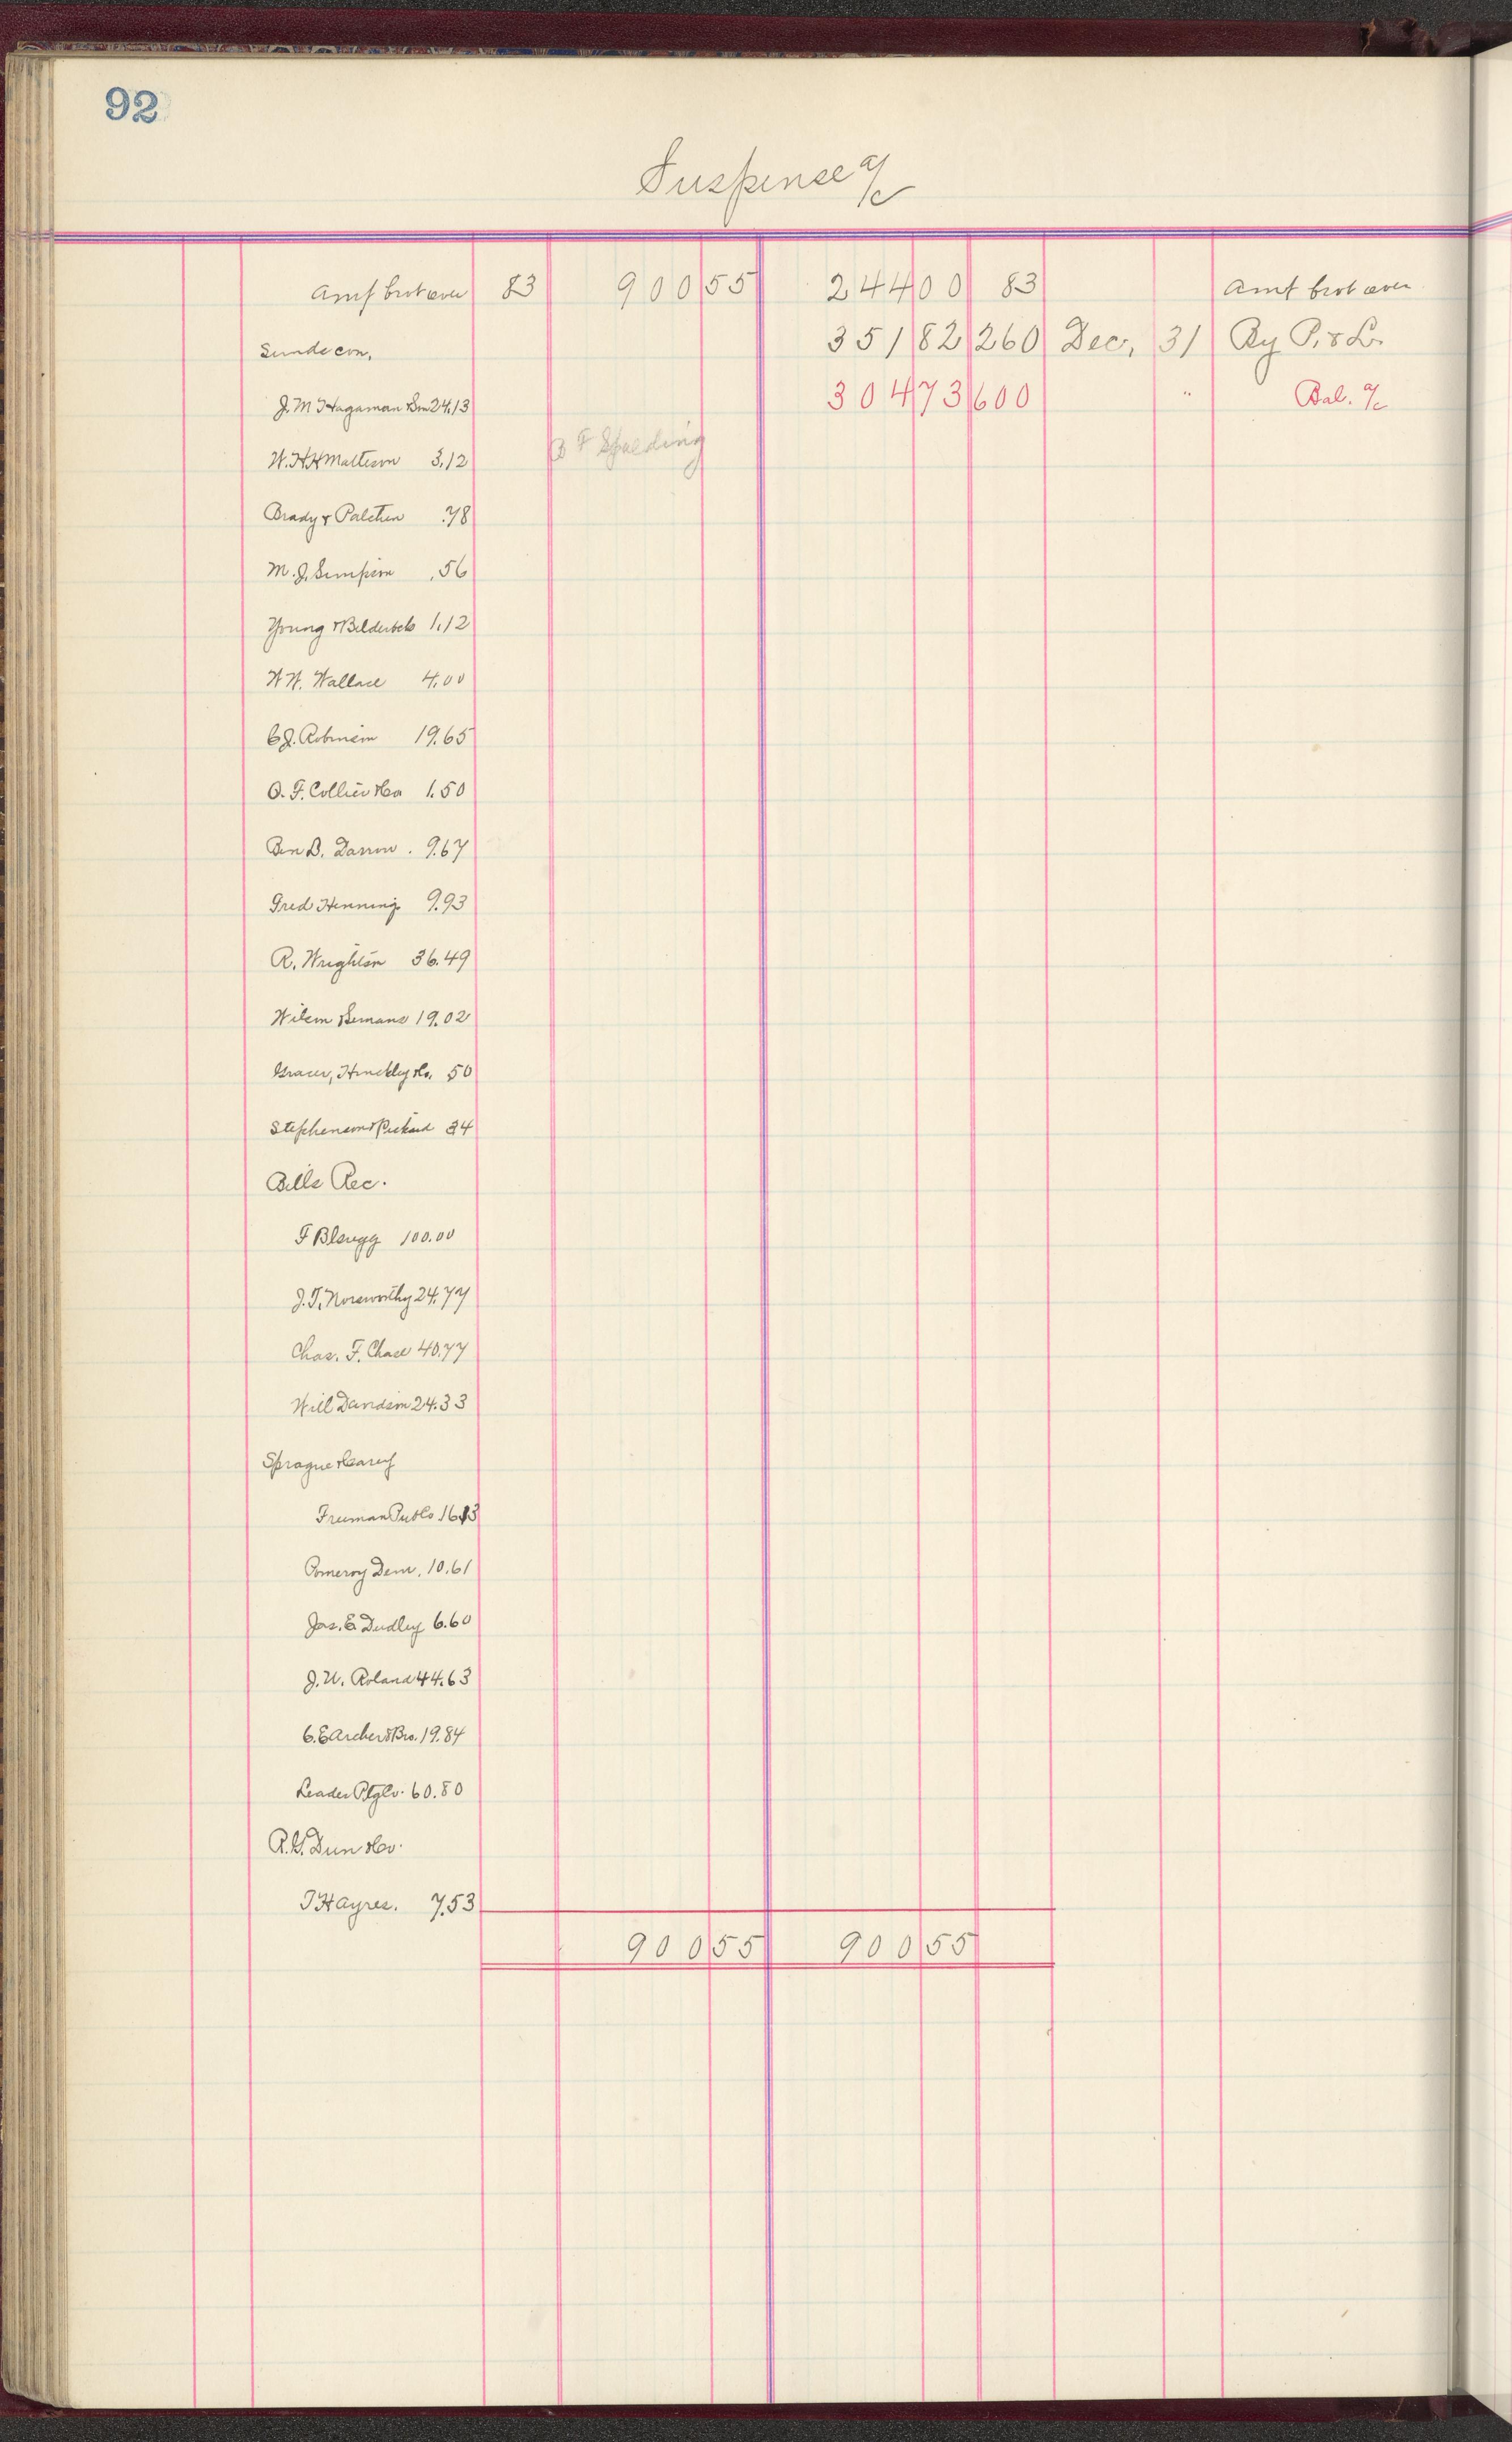 92
Suspense a/c
Amt brot over 83 900 55 244 00 83 Amt brot over
Sunds con. 351 82 260 Dec, 31 By P. & L.
J. M Hagaman Bm 24.13 304 73 600 " Bal. a/c
W. H. H Matteson 3.12 B F Spalding
Brady & Patchen .78
M. J. Simpson .56
Young & Bilderbek 1.12
W W. Wallace 4.00
C J. Robinson 19.65
O. F. Collier & Co 1.50
Ben B. Darrow. 9.67
Fred Henning 9.93
R. Wrighton 36.49
Wilson Bemans 19.02
Graser, Hinckley & Co. 50
Stephenson & Pickard 34
Bills Rec.
F Blsugg 100.00
J. T. Norsworthy 24.77
Chas. F. Chase 40.77
Will Davidson 24.33
Sprague & Carey
Freeman Pub Co 16.13
Pomeroy Dem. 10.61
Jas. E Dudley 6.60
J. U. Roland 44.63
C. E Archer & Bro. 19.84
Leader Ptg Co. 60.80
R. G. Dun & Co.
T H Ayres. 7.53
900 55 900 55